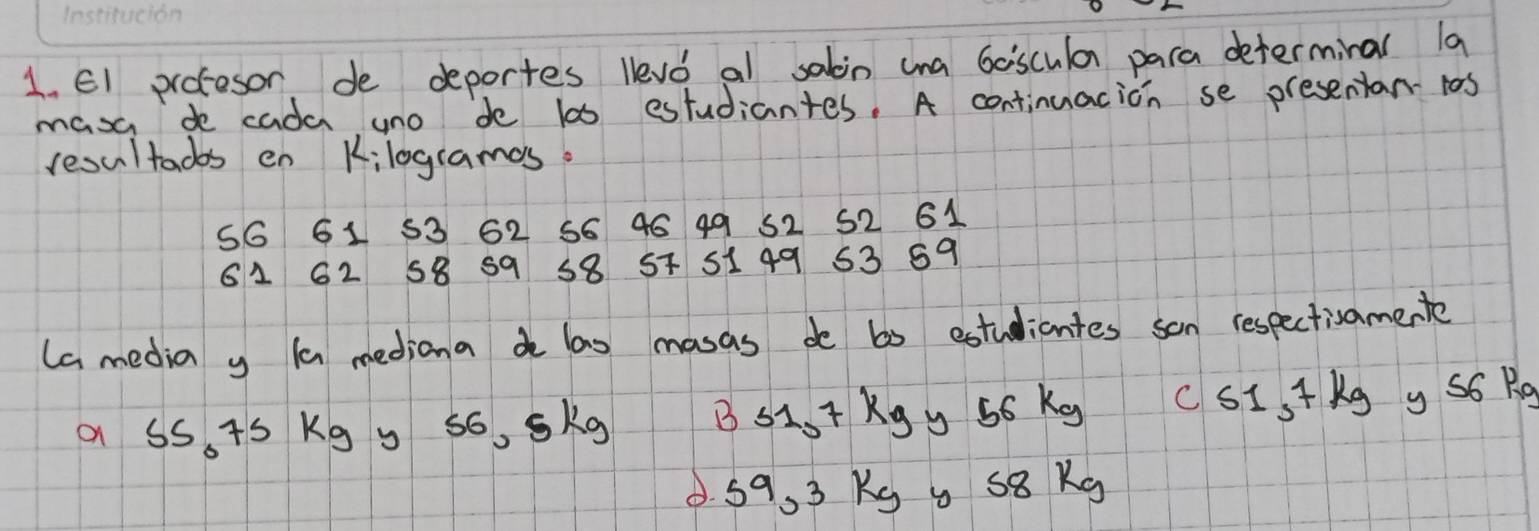 Institución
1. El profesor de deportes llevó al salón una báscula para determinar la
masa de cada uno de los estudiantes. A continuación se presentan los
resultados en Kilogramos.
56 61 53 62 56 46 49 52 52 61
61 62 58 59 58 57 51 49 53 59
La media y la mediana de las masas de los estudiantes son respectivamente
a 55,75 Kg y 56,5 Kg B 51,7 Kg y 56 Kg C 51,7 Kg y 56 Kg
d. 59,3 Kg y 58 Kg